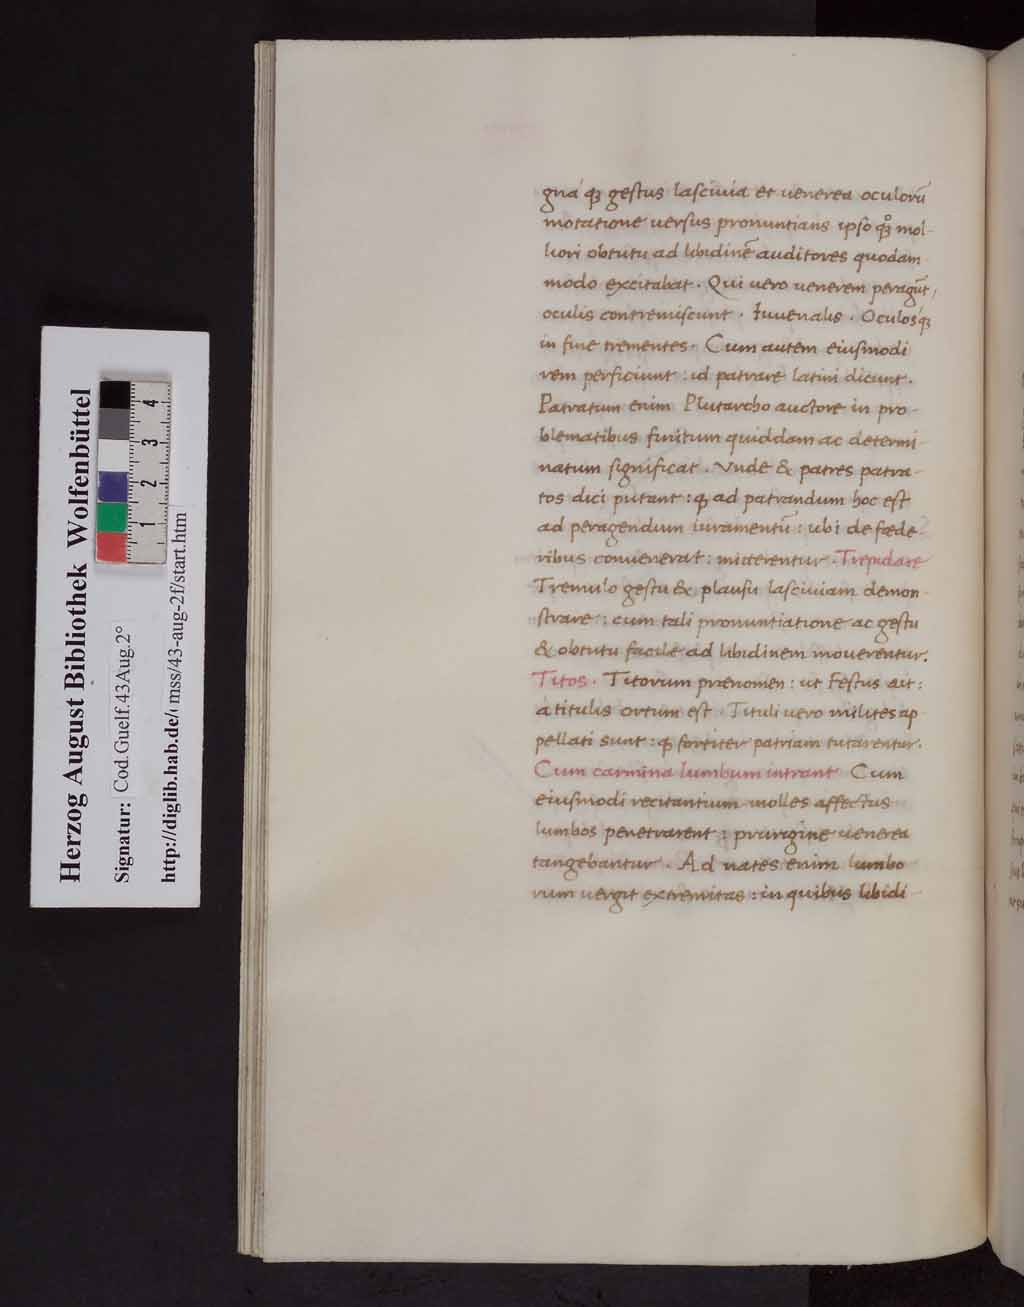 gna' qꝫ gestus lasciuia et uenerea oculorū
motatione uersus pronuntians ipso qꝫ mol-
liori obtutu ad libidinē auditores quodam
modo excitabat. Qui uero uenerem peragūt,
oculis contremiscunt. Iuuenalis. Oculos'qꝫ
in fine trementes. Cum autem eiusmodi
rem perficiunt: id patrare latini dicunt.
Patratum enim Plutarcho auctore in pro-
blematibus finitum quiddam ac determi-
natum significat. Vnde & patres patra-
tos dici putant: ꝙ ad patrandum hoc est
ad peragendum iuramentū: ubi de fœde-
ribus conuenerat: mitterentur. Trepidare
Tremulo gestu & plausu lasciuiam demon-
strare: cum tali pronuntiatione ac gestu
& obtutu facile ad libidinem mouerentur.
Titos. Titorum prænomen: ut Festus ait:
a titulis ortum est. Tituli uero milites ap
pellati sunt: ꝙ fortiter patriam tutarentur.
Cum carmina lumbum intrant Cum
eiusmodi recitantium molles affectus
lumbos penetrarent: prurigine uenerea
tangebantur. Ad nates enim lumbo
rum uergit extremitas: in quibus libidi-
Herzog August Bibliothek Wolfenbüttel
Signatur: Cod.Guelf.43Aug.2°
http://diglib.hab.de/ mss/43-aug-2f/start.htm
1 2 3 4